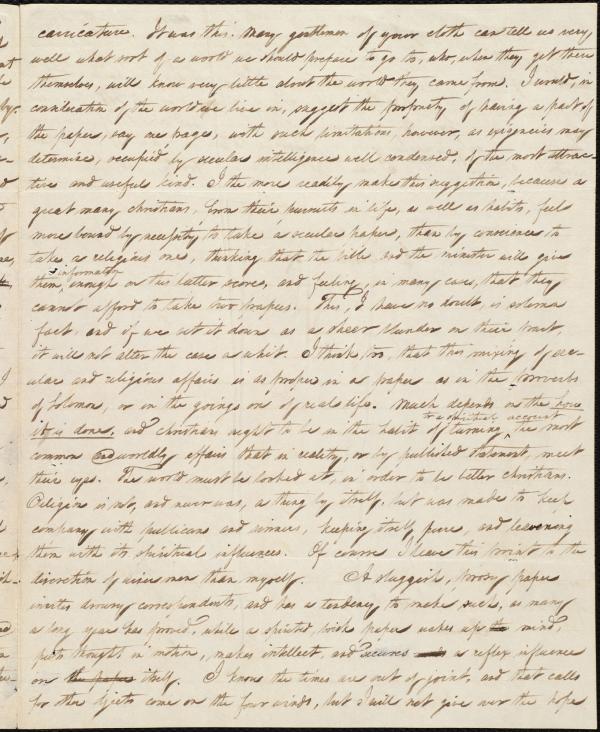 carricature. It was this. Many gentlemen of your cloth can tell us very
well what sort of a world we should prepare to go to, who, when they get there
themselves, will know very little about the world they came from. I would, in
consideration of the world we live in, suggest the propriety of having a part of
the paper, say one page, with such limitations, however, as exigencies may
determine, occupied by secular intelligence well condensed, of the most attrac-
tive and useful kind. I the more readily make this suggestion, because a
great many christians, from their pursuits in life, as well as habits, feel
more bound by necessity to take a secular paper, than by conscience to
take a religious one, thinking that the bible and the minister will give
information
them, enough on this latter score, and feeling, in many cases, that they
cannot afford to take two papers. This, I have no doubt, is solemn
fact, and if we set it down as a sheer blunder on their part,
it will not alter the case a whit. I think, too, that this mixing of sec-
ular and religious affairs is as proper in a paper as in the proverbs
of Solomon, or in the goings on of real life. Much depends on the how
to a spiritual account
it is done, and christians ought to be in the habit of turning the most
common and worldly affairs that in reality, or by published statement, meet
their eyes. The world must be looked at, in order to be better christians.
Religion is not, and never was, a thing by itself, but was made to keep
company with publicans and sinners, keeping itself pure, and leavening
them with its spiritual influences. Of course I leave this point to the
discretion of wiser men than myself. A sluggish, prosy paper
invites drowsy correspondents, and has a tendency to make such, as many
a long year has proved, while a spirited, brisk paper wakes up the mind,
puts thought in motion, makes intellect, and secures a reflex influence
on the paper itself. I know the times are out of joint, and that calls
for other objects come on the four winds, but I will not give over the hope